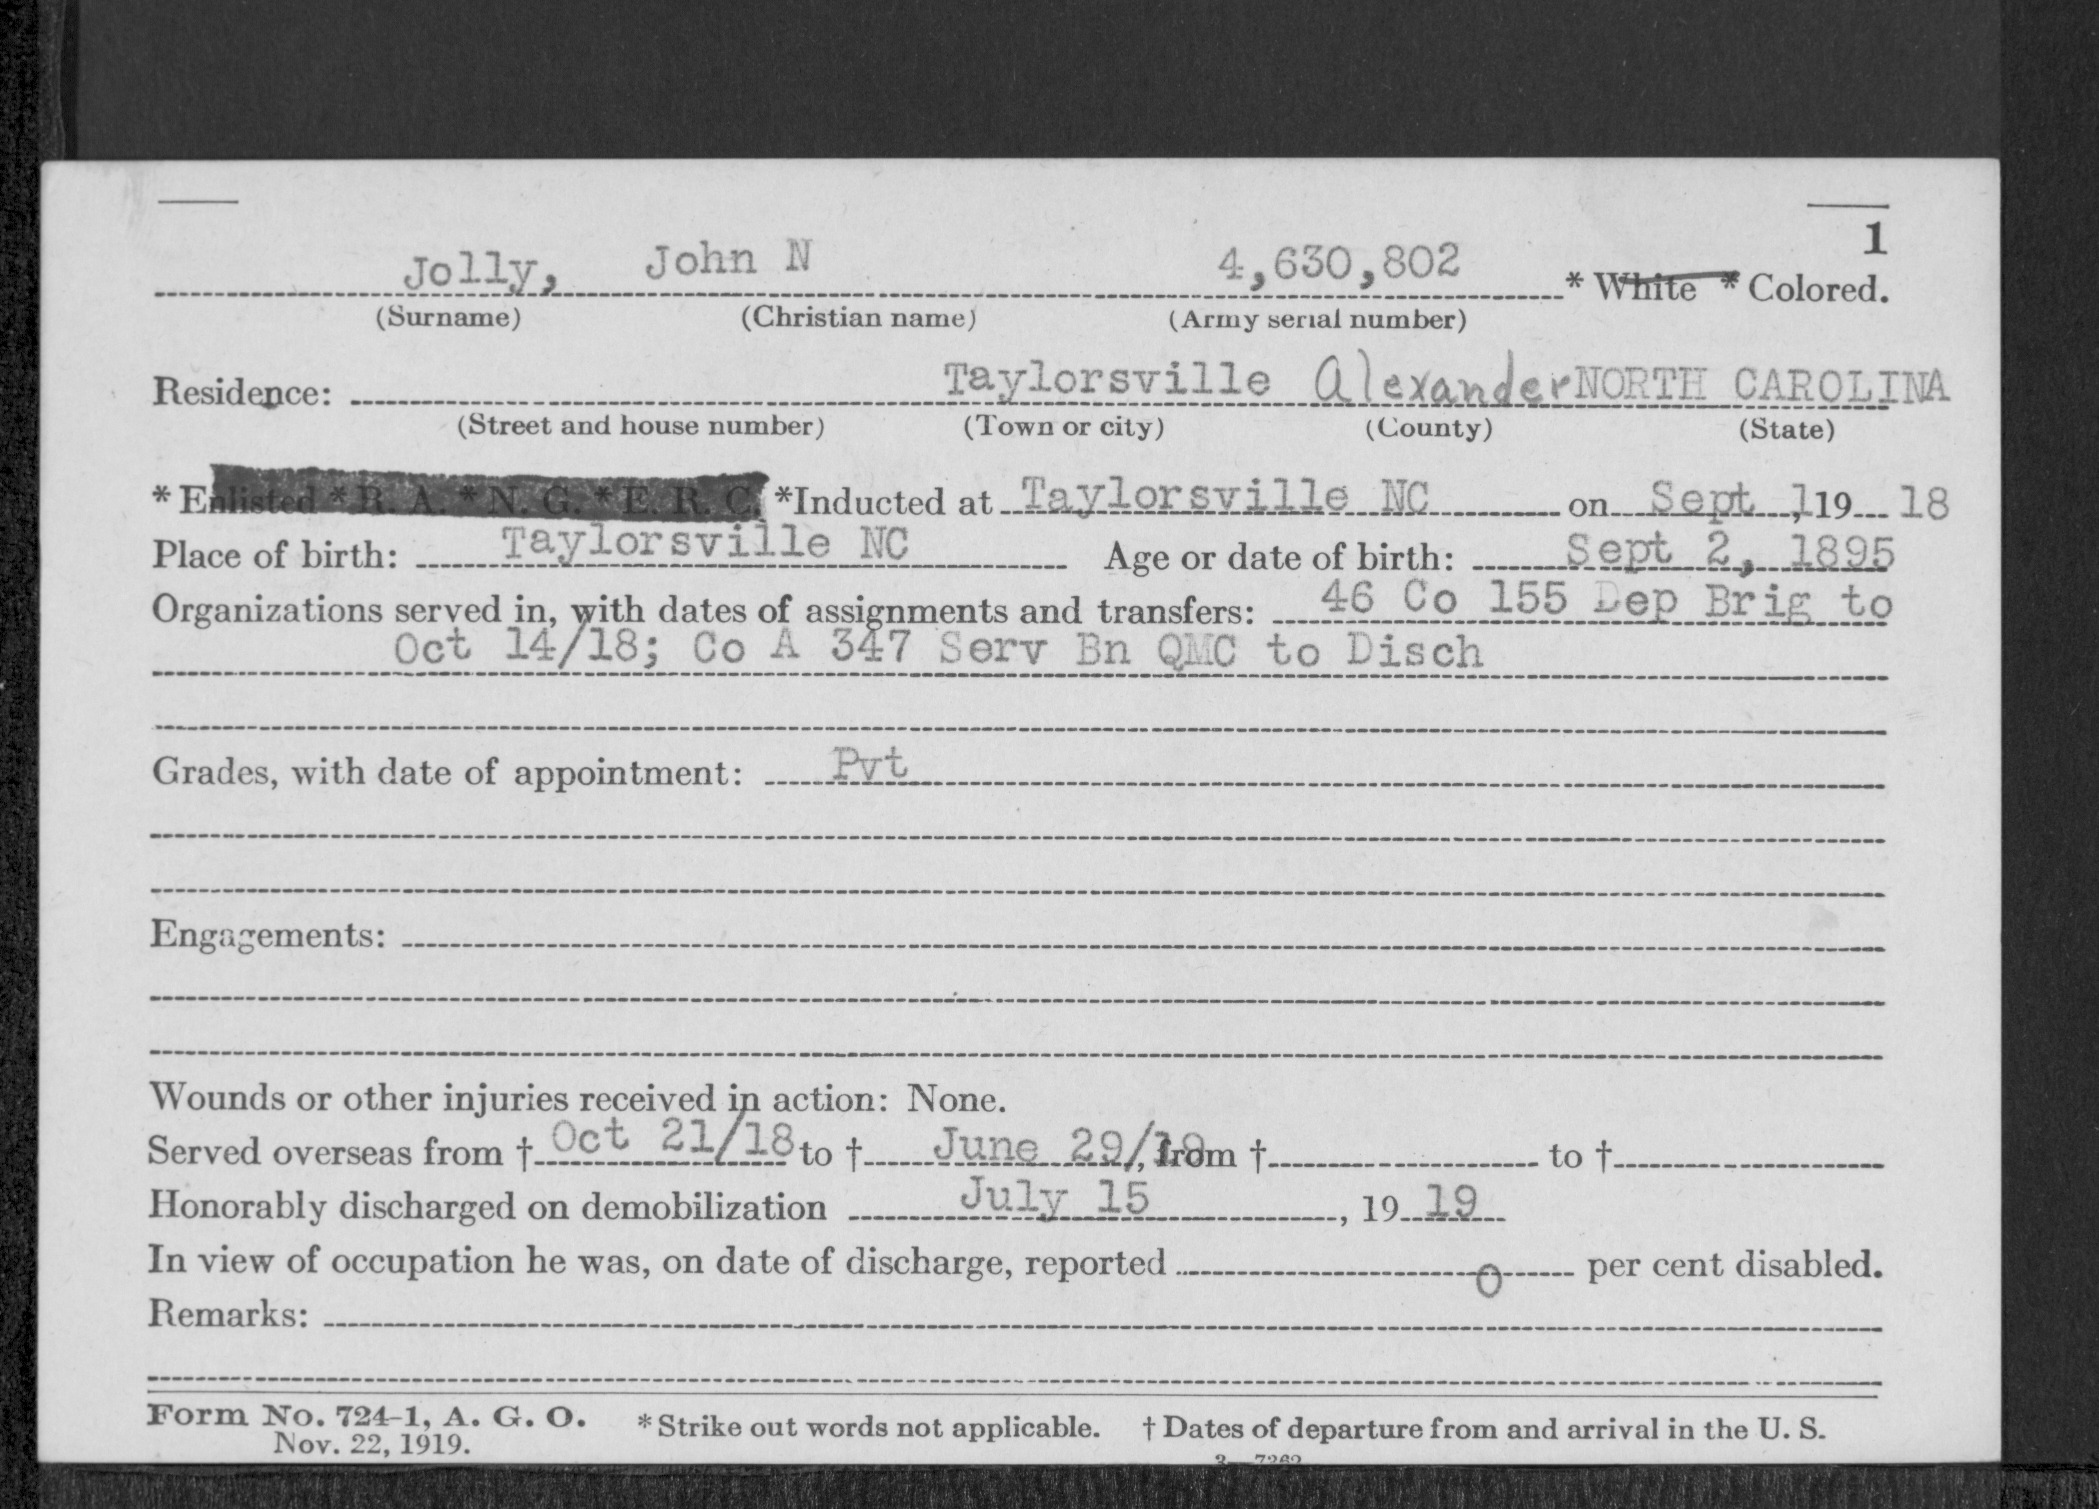 1
Jolly, John N 4,630,802 * White * Colored.
(Surname) (Christian name) (Army serial number)
Residence: Taylorsville Alexander NORTH CAROLINA
(Street and house number) (Town or city) (County) (State)
* Enlisted * R. A. * N. G. * E. R. C. *Inducted at Taylorsville NC on Sept 1, 19 18
Place of birth: Taylorsville NC Age or date of birth: Sept 2, 1895
Organizations served in, with dates of assignments and transfers: 46 Co 155 Dep Brig to
Oct 14/18; Co A 347 Serv Bn QMC to Disch
Grades, with date of appointment: Pvt
Engagements:
Wounds or other injuries received in action: None.
Served overseas from † Oct 21/18 to † June 29/19, from † to †
Honorably discharged on demobilization July 15, 19 19
In view of occupation he was, on date of discharge, reported 0 per cent disabled.
Remarks:
Form No. 724-1, A. G. O. * Strike out words not applicable. † Dates of departure from and arrival in the U. S.
Nov. 22, 1919.
3—7262